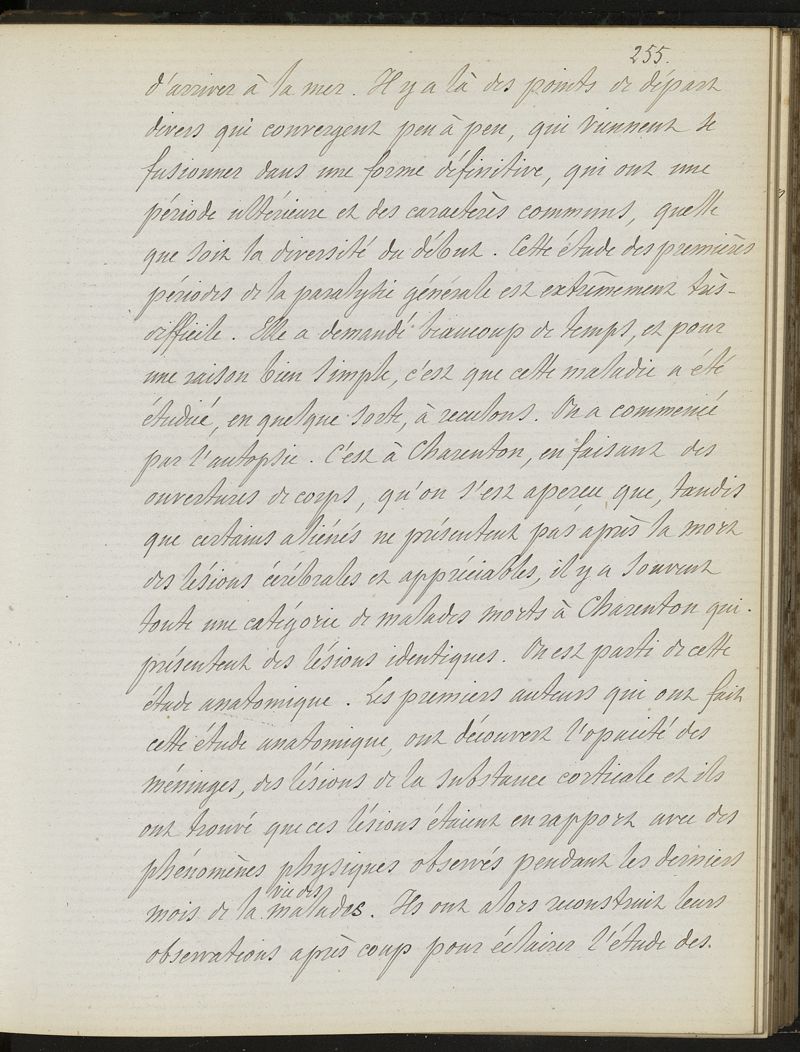 255.
d'arriver à la mer. Il y a là des points de départ
divers qui convergent peu à peu, qui viennent se
fusionner dans une forme définitive, qui ont une
période ultérieure et des caractères communs, quelle
que soit la diversité du début. Cette étude des premières
périodes de la paralysie générale est extrêmement très-
difficile. Elle a demandé beaucoup de temps, et pour
une raison bien simple, c'est que cette maladie a été
étudiée, en quelque sorte, à reculons. On a commencé
par l'autopsie. C'est à Charenton, en faisant des
ouvertures de corps, qu'on s'est aperçu que, tandis
que certains aliénés ne présentent pas après la mort
des lésions cérébrales et appréciables, il y a souvent
toute une catégorie de malades morts à Charenton qui
présentent des lésions identiques. On est parti de cette
étude anatomique. Les premiers auteurs qui ont fait
cette étude anatomique, ont découvert l'opacité des
méninges, des lésions de la substance corticale et ils
ont trouvé que ces lésions étaient en rapport avec des
phénomènes physiques observés pendant les derniers
vie des
mois de la malades. Ils ont alors reconstruit leurs
observations après coup pour éclairer l'étude des